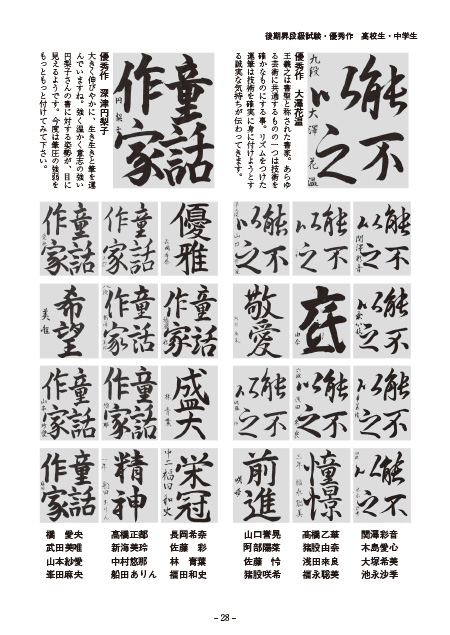 後期昇段級試験・優秀作　高校生・中学生
不能
之以
九段　大澤　花温
優秀作　大澤花温
王羲之は書聖と称された書家。あらゆ
る芸術に共通するものの一つは技術を
確かなものにする事。リズムをつけた
運筆は技術を確実に身に付けようとす
る誠実な気持ちが伝わってきます。
童話
作家
円梨子
優秀作　深津円梨子
大きく伸びやかに、生き生きと筆を運
んでいますね。強く温かく意志の強い
円梨子さんの書に対する姿勢が、目に
見えるようです。今度は筆圧の強弱を
もっともっと付けてみて下さい。
不能
之以
関澤彩音
不能
之以
不能
之以
優雅
長岡希奈
童話
作家
童話
作家
不能
之以
底
由奈
敬愛
童話
作家
童話
作家
希望
美唯
不能
之以
不能
之以
六段　浅田　来良
不能
之以
盛夫
林　青葉
童話
作家
童話
作家
山本紗愛
不能
之以
憧憬
三年　福永聡美
前進
咲希
栄冠
中二　福田和史
精神
一年　船田ありん
童話
作家
関澤彩音
木島愛心
大塚希美
池永沙季
高橋乙華
猪股由奈
浅田来良
福永聡美
山口誉晃
阿部陽菜
佐藤　怜
猪股咲希
長岡希奈
佐藤　彩
林　青葉
福田和史
高橋正都
新海美玲
中村悠那
船田ありん
橋　愛央
武田美唯
山本紗愛
峯田麻央
– 28 –